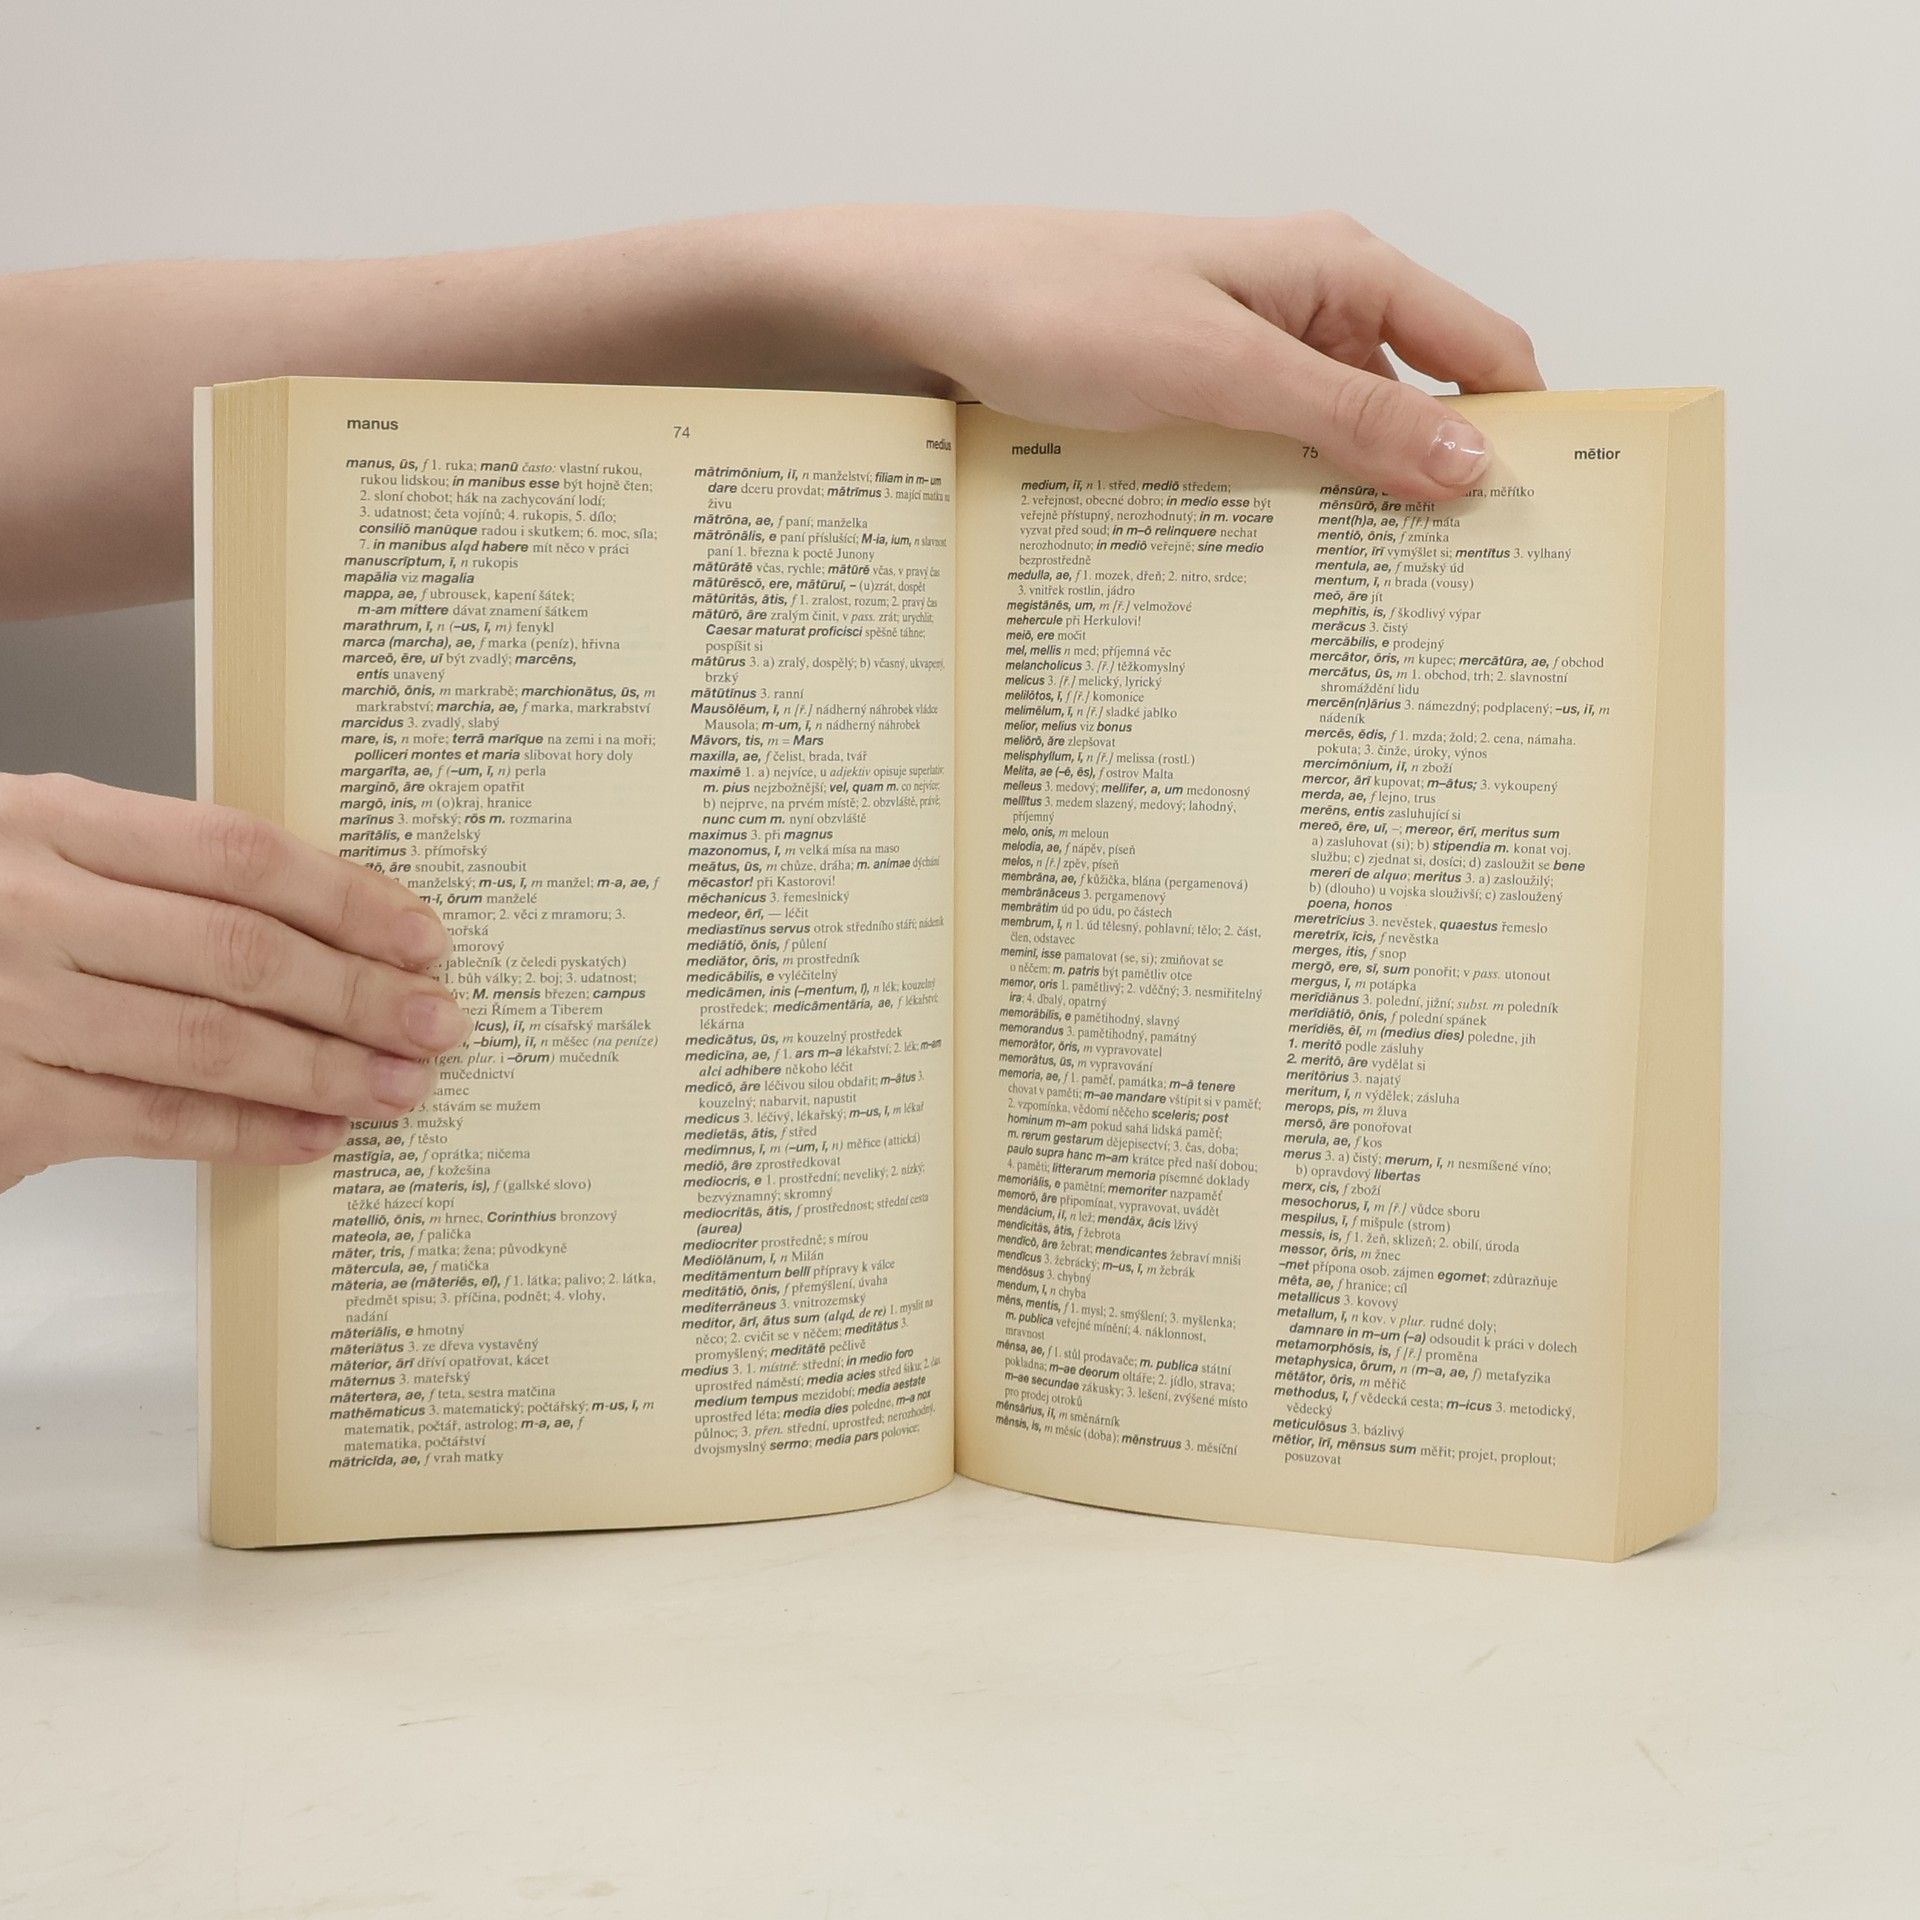 manus
74
medius
manus, ūs, f 1. ruka; manū často: vlastní rukou,
rukou lidskou; in manibus esse být hojně čten;
2. sloní chobot; hák na zachycování lodí;
3. udatnost; četa vojínů; 4. rukopis, 5. dílo;
consiliō manūque radou i skutkem; 6. moc, síla;
7. in manibus alqd habere mít něco v práci
manuscrīptum, ī, n rukopis
mapālia viz magalia
mappa, ae, f ubrousek, kapení šátek;
m-am mittere dávat znamení šátkem
marathrum, ī, n (–us, ī, m) fenykl
marca (marcha), ae, f marka (peníz), hřivna
marceō, ēre, uī být zvadlý; marcēns,
entis unavený
marchiō, ōnis, m markrabě; marchionātus, ūs, m
markrabství; marchia, ae, f marka, markrabství
marcidus 3. zvadlý, slabý
mare, is, n moře; terrā marīque na zemi i na moři;
polliceri montes et maria slibovat hory doly
margarīta, ae, f (–um, ī, n) perla
marginō, āre okrajem opatřit
margō, inis, m (o)kraj, hranice
marīnus 3. mořský; rōs m. rozmarina
marītālis, e manželský
maritimus 3. přímořský
āre snoubit, zasnoubit
manželský; m-us, ī, m manžel; m-a, ae, f
m-ī, ōrum manželé
mramor; 2. věci z mramoru; 3.
jablečník (z čeledi pyskatých)
1. bůh války; 2. boj; 3. udatnost;
M. mensis březen; campus
Římem a Tiberem
iī, m císařský maršálek
–bium), iī, n měšec (na peníze)
(gen. plur. i –ōrum) mučedník
mučednictví
3. stávám se mužem
3. mužský
ae, f těsto
mastīgia, ae, f oprátka; ničema
mastruca, ae, f kožešina
matara, ae (materis, is), f (gallské slovo)
těžké házecí kopí
matelliō, ōnis, m hrnec, Corinthius bronzový
mateola, ae, f palička
māter, tris, f matka; žena; původkyně
mātercula, ae, f matička
māteria, ae (māteriēs, eī), f 1. látka; palivo; 2. látka,
předmět spisu; 3. příčina, podnět; 4. vlohy,
nadání
māteriālis, e hmotný
māteriātus 3. ze dřeva vystavěný
māterior, ārī dříví opatřovat, kácet
māternus 3. mateřský
mātertera, ae, f teta, sestra matčina
mathēmaticus 3. matematický; počtářský; m-us, ī, m
matematik, počtář, astrolog; m-a, ae, f
matematika, počtářství
mātricīda, ae, f vrah matky
mātrimōnium, iī, n manželství; fīliam in m–um
dare dceru provdat; mātrīmus 3. mající matku na
živu
mātrōna, ae, f paní; manželka
mātrōnālis, e paní příslušící; M-ia, ium, n slavnost
paní 1. března k poctě Junony
mātūrātē včas, rychle; mātūrē včas, v pravý čas
mātūrēscō, ere, mātūruī, – (u)zrát, dospět
mātūritās, ātis, f 1. zralost, rozum; 2. pravý čas
mātūrō, āre zralým činit, v pass. zrát; urychlit;
Caesar maturat proficisci spěšně táhne;
pospíšit si
mātūrus 3. a) zralý, dospělý; b) včasný, ukvapený,
brzký
mātūtīnus 3. ranní
Mausōlēum, ī, n [ř.] nádherný náhrobek vládce
Mausola; m-um, ī, n nádherný náhrobek
Māvors, tis, m = Mars
maxilla, ae, f čelist, brada, tvář
maximē 1. a) nejvíce, u adjektiv opisuje superlativ:
m. pius nejzbožnější; vel, quam m. co nejvíce;
b) nejprve, na prvém místě; 2. obzvláště, právě;
nunc cum m. nyní obzvláště
maximus 3. při magnus
mazonomus, ī, m velká mísa na maso
meātus, ūs, m chůze, dráha; m. animae dýchání
mēcastor! při Kastorovi!
mēchanicus 3. řemeslnický
medeor, ērī, — léčit
mediastīnus servus otrok středního stáří; nádeník
mediātiō, ōnis, f půlení
mediātor, ōris, m prostředník
medicābilis, e vyléčitelný
medicāmen, inis (–mentum, ī), n lék; kouzelný
prostředek; medicāmentāria, ae, f lékařství;
lékárna
medicātus, ūs, m kouzelný prostředek
medicīna, ae, f 1. ars m–a lékařství; 2. lék; m–am
alci adhibere někoho léčit
medicō, āre léčivou silou obdařit; m–ātus 3.
kouzelný; nabarvit, napustit
medicus 3. léčivý, lékařský; m–us, ī, m lékař
medietās, ātis, f střed
medimnus, ī, m (–um, ī, n) měřice (attická)
mediō, āre zprostředkovat
mediocris, e 1. prostřední; neveliký; 2. nízký;
bezvýznamný; skromný
mediocritās, ātis, f prostřednost; střední cesta
(aurea)
mediocriter prostředně; s mírou
Mediōlānum, ī, n Milán
meditāmentum bellī přípravy k válce
meditātiō, ōnis, f přemýšlení, úvaha
mediterrāneus 3. vnitrozemský
meditor, ārī, ātus sum (alqd, de re) 1. myslit na
něco; 2. cvičit se v něčem; meditātus 3.
promyšlený; meditātē pečlivě
medius 3. 1. místně: střední; in medio foro
uprostřed náměstí; media acies střed šiku; 2. čas.
medium tempus mezidobí; media aestate
uprostřed léta; media dies poledne, m–a nox
půlnoc; 3. přen. střední, uprostřed; nerozhodný,
dvojsmyslný sermo; media pars polovice;
medulla
75
mētior
medium, iī, n 1. střed, mediō středem;
2. veřejnost, obecné dobro; in medio esse být
veřejně přístupný, nerozhodnutý; in m. vocare
vyzvat před soud; in m–ō relinquere nechat
nerozhodnuto; in mediō veřejně; sine medio
bezprostředně
medulla, ae, f 1. mozek, dřeň; 2. nitro, srdce;
3. vnitřek rostlin, jádro
megistānēs, um, m [ř.] velmožové
mehercule při Herkulovi!
meiō, ere močit
mel, mellis n med; příjemná věc
melancholicus 3. [ř.] těžkomyslný
melicus 3. [ř.] melický, lyrický
melilōtos, ī, f [ř.] komonice
melimēlum, ī, n [ř.] sladké jablko
melior, melius viz bonus
meliōrō, āre zlepšovat
melisphyllum, ī, n [ř.] melissa (rostl.)
Melita, ae (–ē, ēs), f ostrov Malta
melleus 3. medový; mellifer, a, um medonosný
mellītus 3. medem slazený, medový; lahodný,
příjemný
melo, onis, m meloun
melodia, ae, f nápěv, píseň
melos, n [ř.] zpěv, píseň
membrāna, ae, f kůžička, blána (pergamenová)
membrānāceus 3. pergamenový
membrātim úd po údu, po částech
membrum, ī, n 1. úd tělesný, pohlavní; tělo; 2. část,
člen, odstavec
meminī, isse pamatovat (se, si); zmiňovat se
o něčem; m. patris být pamětliv otce
memor, oris 1. pamětlivý; 2. vděčný; 3. nesmiřitelný
ira; 4. dbalý, opatrný
memorābilis, e pamětihodný, slavný
memorandus 3. pamětihodný, památný
memorātor, ōris, m vypravovatel
memorātus, ūs, m vypravování
memoria, ae, f 1. paměť, památka; m–ā tenere
chovat v paměti; m–ae mandare vštípit si v paměť;
2. vzpomínka, vědomí něčeho sceleris; post
hominum m–am pokud sahá lidská paměť;
m. rerum gestarum dějepisectví; 3. čas, doba;
paulo supra hanc m–am krátce před naší dobou;
4. paměti; litterarum memoria písemné doklady
memoriālis, e pamětní; memoriter nazpaměť
memorō, āre připomínat, vypravovat, uvádět
mendācium, iī, n lež; mendāx, ācis lživý
mendīcitās, ātis, f žebrota
mendīcō, āre žebrat; mendicantes žebraví mniši
mendīcus 3. žebrácký; m–us, ī, m žebrák
mendōsus 3. chybný
mendum, ī, n chyba
mēns, mentis, f 1. mysl; 2. smýšlení; 3. myšlenka;
m. publica veřejné mínění; 4. náklonnost,
mravnost
mēnsa, ae, f 1. stůl prodavače; m. publica státní
pokladna; m–ae deorum oltáře; 2. jídlo, strava;
m–ae secundae zákusky; 3. lešení, zvýšené místo
pro prodej otroků
mēnsārius, iī, m směnárník
mēnsis, is, m měsíc (doba); mēnstruus 3. měsíční
mēnsūra, měřítko
mēnsūrō, āre měřit
ment(h)a, ae, f [ř.] máta
mentiō, ōnis, f zmínka
mentior, īrī vymýšlet si; mentītus 3. vylhaný
mentula, ae, f mužský úd
mentum, ī, n brada (vousy)
meō, āre jít
mephītis, is, f škodlivý výpar
merācus 3. čistý
mercābilis, e prodejný
mercātor, ōris, m kupec; mercātūra, ae, f obchod
mercātus, ūs, m 1. obchod, trh; 2. slavnostní
shromáždění lidu
mercēn(n)ārius 3. námezdný; podplacený; –us, iī, m
nádeník
mercēs, ēdis, f 1. mzda; žold; 2. cena, námaha.
pokuta; 3. činže, úroky, výnos
mercimōnium, iī, n zboží
mercor, ārī kupovat; m–ātus; 3. vykoupený
merda, ae, f lejno, trus
merēns, entis zasluhující si
mereō, ēre, uī, –; mereor, ērī, meritus sum
a) zasluhovat (si); b) stipendia m. konat voj.
službu; c) zjednat si, dosíci; d) zasloužit se bene
mereri de alquo; meritus 3. a) zasloužilý;
b) (dlouho) u vojska sloužívší; c) zasloužený
poena, honos
meretrīcius 3. nevěstek, quaestus řemeslo
meretrīx, īcis, f nevěstka
merges, itis, f snop
mergō, ere, sī, sum ponořit; v pass. utonout
mergus, ī, m potápka
merīdiānus 3. polední, jižní; subst. m poledník
merīdiātiō, ōnis, f polední spánek
merīdiēs, ēī, m (medius dies) poledne, jih
1. meritō podle zásluhy
2. meritō, āre vydělat si
meritōrius 3. najatý
meritum, ī, n výdělek; zásluha
merops, pis, m žluva
mersō, āre ponořovat
merula, ae, f kos
merus 3. a) čistý; merum, ī, n nesmíšené víno;
b) opravdový libertas
merx, cis, f zboží
mesochorus, ī, m [ř.] vůdce sboru
mespilus, ī, f mišpule (strom)
messis, is, f 1. žeň, sklizeň; 2. obilí, úroda
messor, ōris, m žnec
–met přípona osob. zájmen egomet; zdůrazňuje
mēta, ae, f hranice; cíl
metallicus 3. kovový
metallum, ī, n kov. v plur. rudné doly;
damnare in m–um (–a) odsoudit k práci v dolech
metamorphōsis, is, f [ř.] proměna
metaphysica, ōrum, n (m–a, ae, f) metafyzika
mētātor, ōris, m měřič
methodus, ī, f vědecká cesta; m–icus 3. metodický,
vědecký
meticulōsus 3. bázlivý
mētior, īrī, mēnsus sum měřit; projet, proplout;
posuzovat